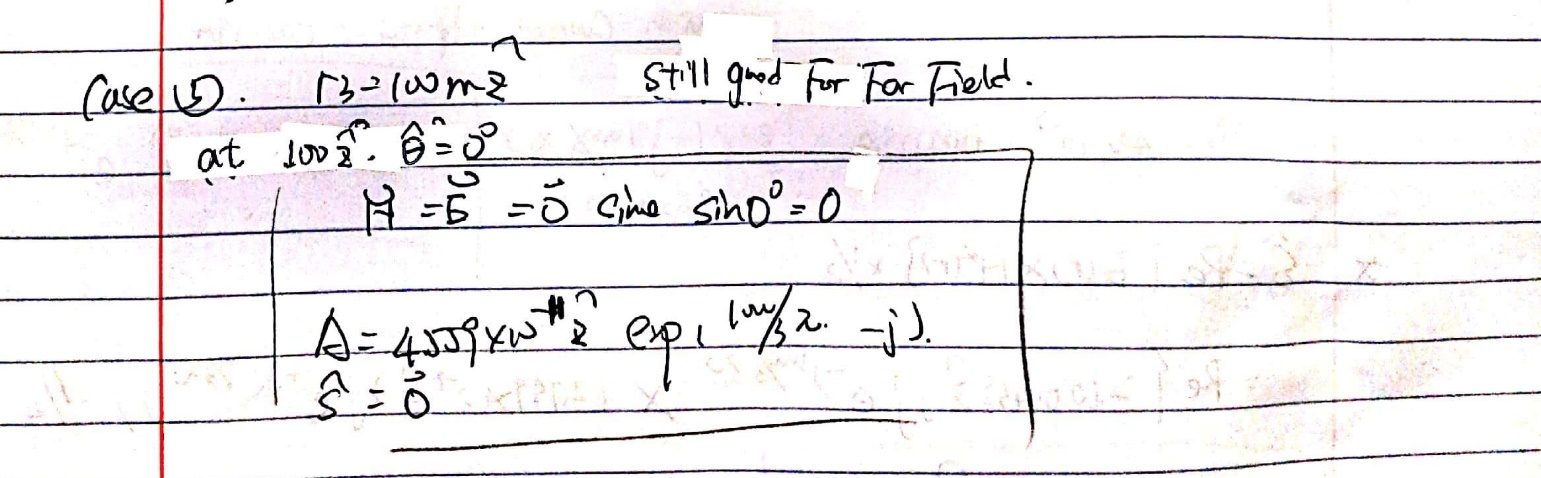 Case ⑤. r3=100m ẑ still good For Far Field.
at 100ẑ. θ̂=0°
H⃗ =E⃗ =0⃗ sine sin0°=0
A= 4.559×10 ẑ exp( 100/3 π. -j).
Ŝ = 0⃗